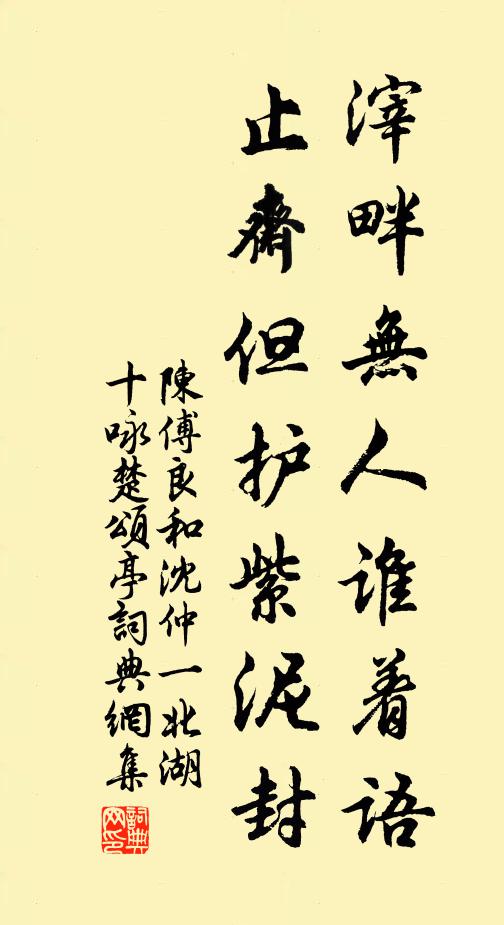 滓畔無人誰着語
止齋但护紫泥封
陳傅良和沈仲一北湖
十咏楚頌亭詞典網集
詞典
网印